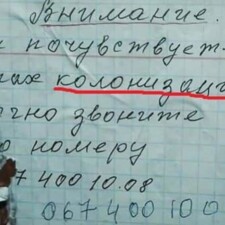 Внимание.
почувствует-
ах колонизац
чно звоните
о номеру
7 400 10.08
067 400 100